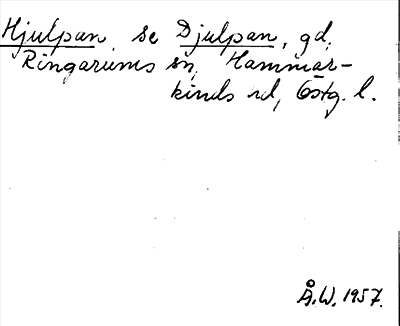 Hjulpan, se Djulpan, gd,
Ringarums sn, Hammar-
kinds hd, Östg. l.
Å.W. 1957.